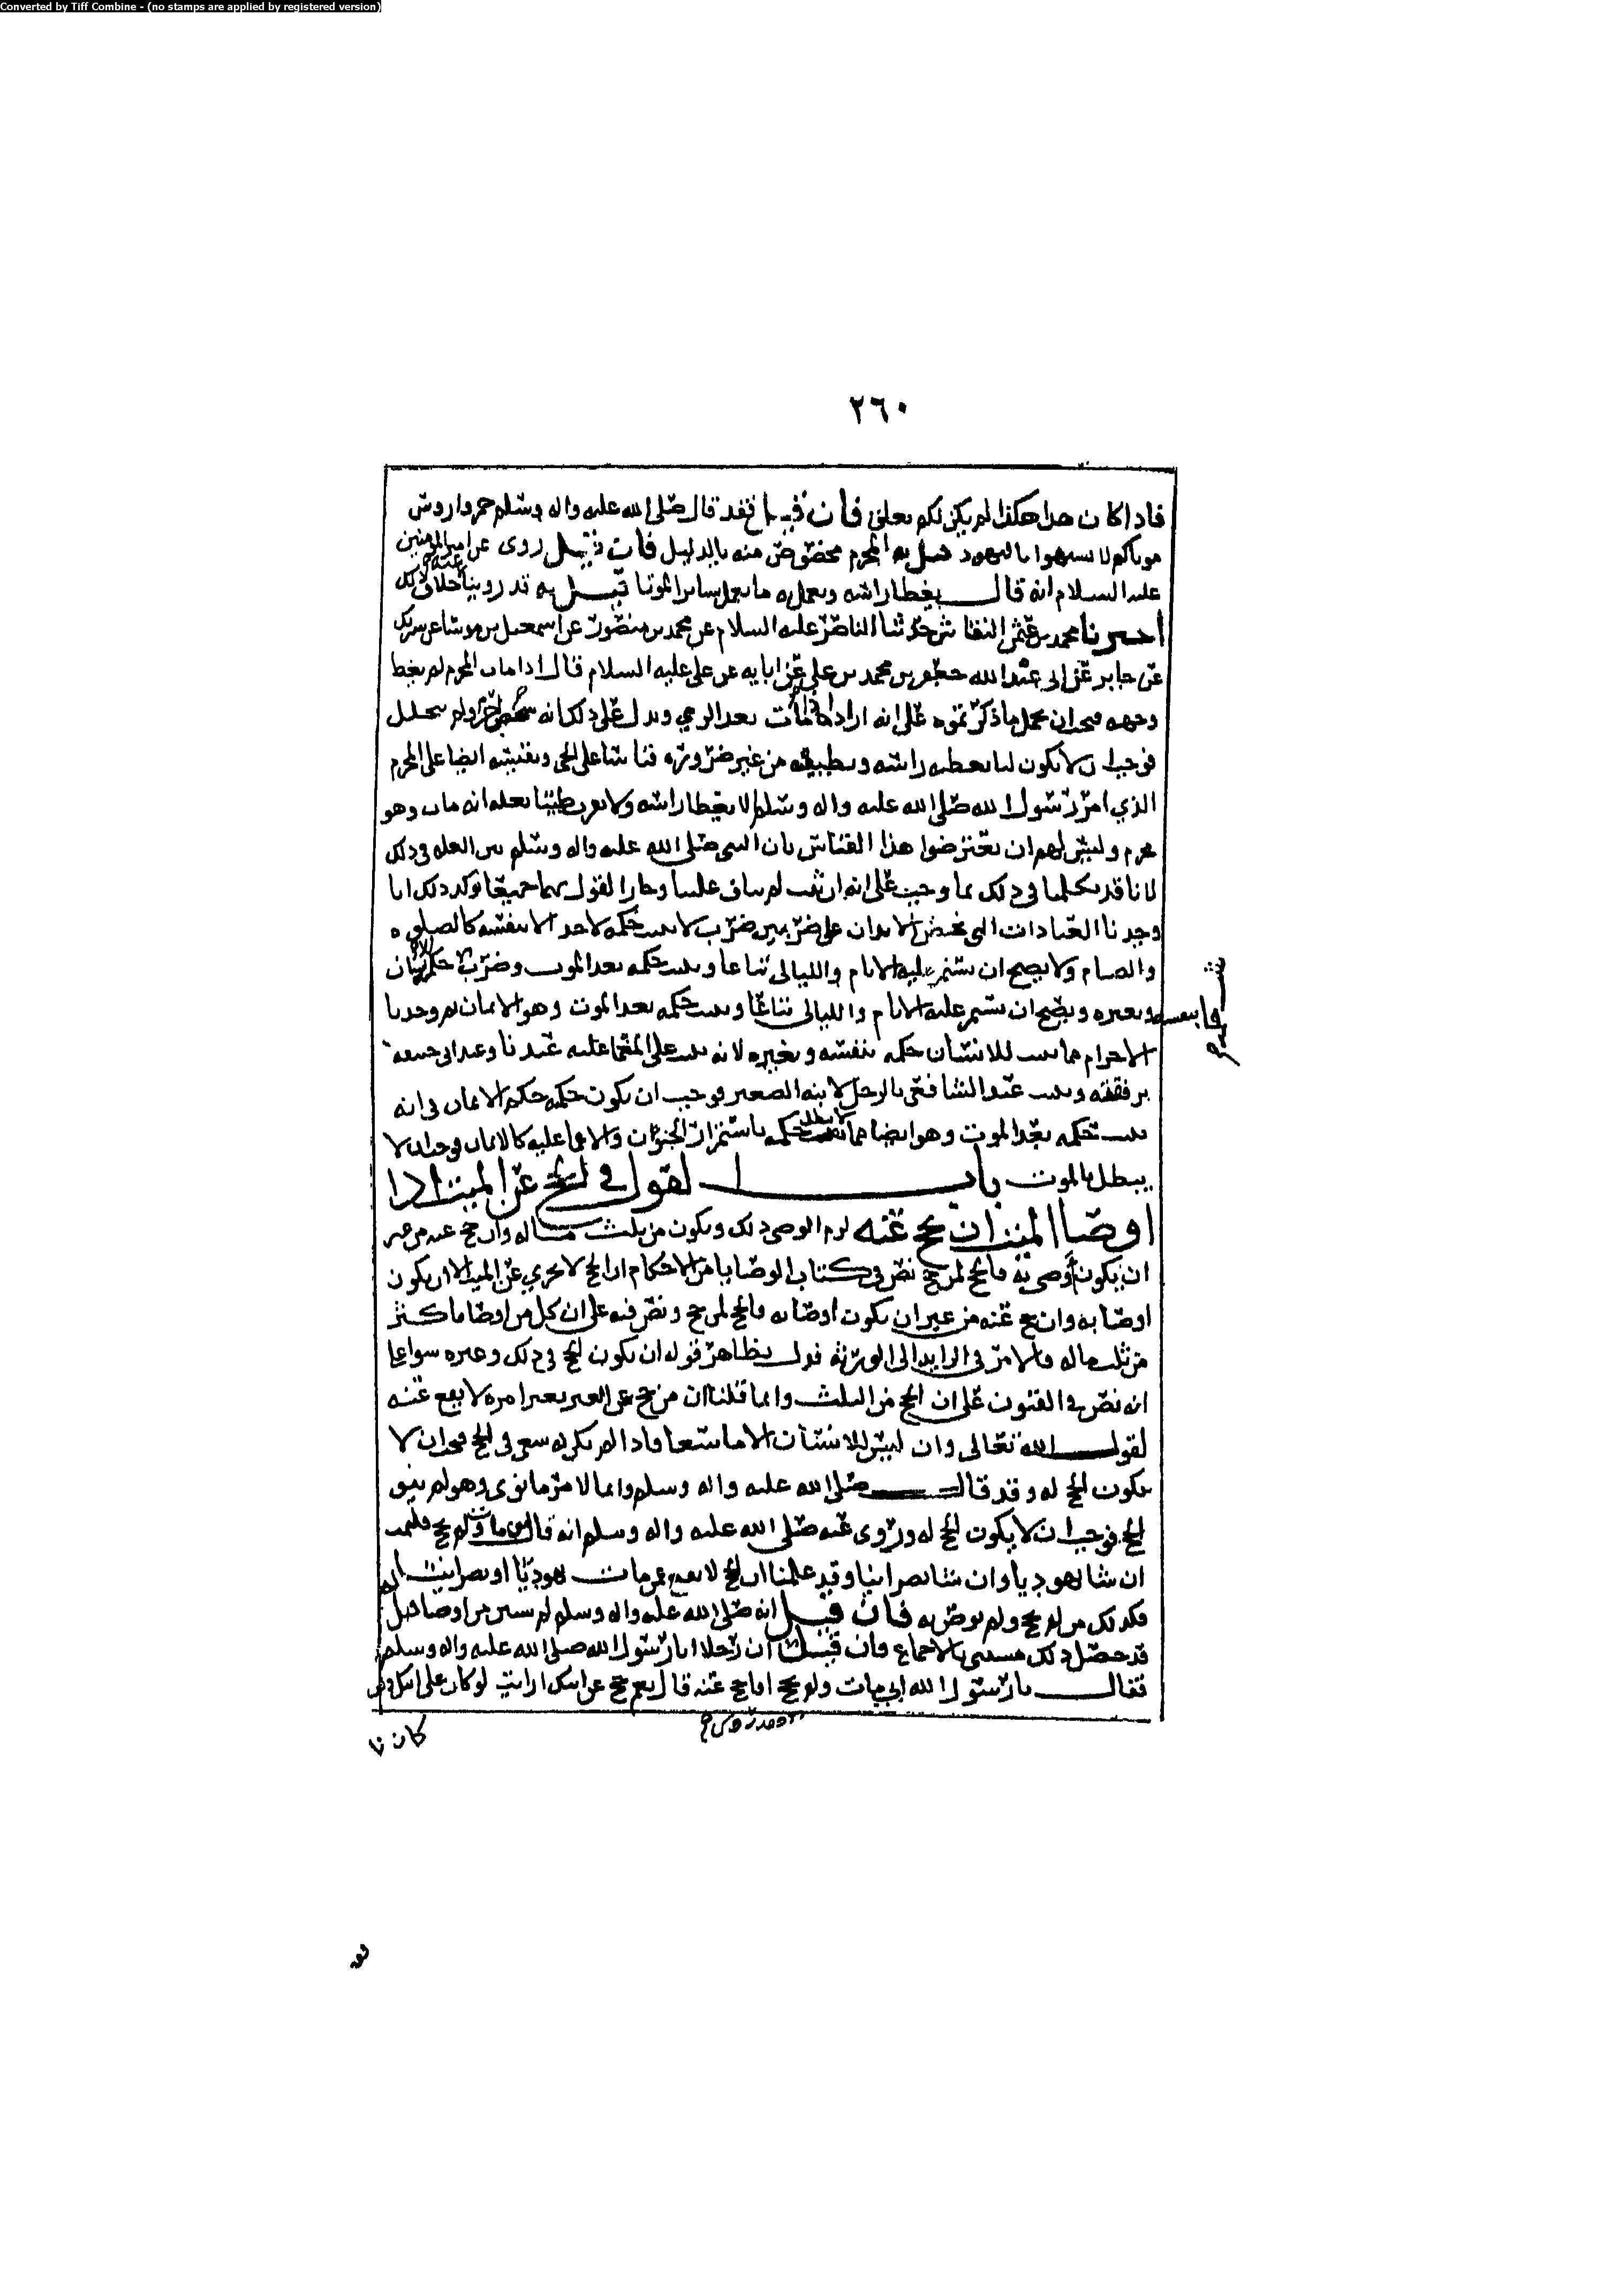 Converted by Tiff Combine - (no stamps are applied by registered version)
٢٦٠
فاذا كان هذا هكذا لم يكن لكم تعلق فان قيل فقد قال صلى الله عليه واله وسلم خمروا روس
موتاكم لا تشبهوا باليهود قيل له المحرم مخصوص منه بالدليل فان قيل روي عن امير المومنين
عليه السلام انه قال يغطا راسه ويعمل به ما يعمل بساير الموتا قيل له قد روينا عنه خلاف ذلك
اخبرنا محمد بن عثمن النقاش حدثنا الناصر عليه السلام عن محمد بن منصور عن اسمعيل بن موسا عن شريك
عن جابر عن ابي عبد الله جعفر بن محمد بن علي عن ابايه عن علي عليه السلام قال اذا مات المحرم لم يغط
وجهه فيجب ان يحمل ما ذكرتموه على انه اراد اذا مات بعد الرمي ويدل على ذلك انه شخص احرم ولم يتحلل
فوجب ان لا يكون لنا تغطيه راسه وتطييبه من غير ضرورة قياسا على الحي ونقيسه ايضا على المحرم
الذي امر رسول الله صلى الله عليه واله وسلم لا يغطا راسه ولا يقرب طيبا بعله انه مات وهو
محرم وليس لهم ان يعترضوا هذا القياس بان النبي صلى الله عليه واله وسلم بين العله في ذلك
لانا قد تكلمنا في ذلك بما وجب على انه ان ثبت لم يناف علتنا وجاز القول بهما جميعا يوكد ذلك انا
وجدنا العبادات التي تختص الابدان على ضربين ضرب لا يثبت حكمه لاحد الا بنفسه كالصلوه
والصيام ولا يصح ان يستمر عليه الايام والليالي تباعا ويثبت حكمه بعد الموت وضرب حكمه للانسان
بنفسه وبغيره ويصح ان يستمر عليه الايام والليالي تباعا ويثبت حكمه بعد الموت وهو الايمان ثم وجدنا
الاحرام مما يثبت للانسان حكمه بنفسه وبغيره لانه يثبت على المغما عليه عندنا وعند ابي حنيفه
برفقته ويثبت عند الشافعي بالرجل لابنه الصغير فوجب ان يكون حكمه حكم الايمان في انه
يثبت حكمه بعد الموت وهو ايضا مما لا يبطل حكمه باستمرار الجنون والاغما عليه كالايمان فوجب ان لا
يبطل بالموت باب القول في الحج عن الميت اذا
اوصا الميت ان يحج عنه لزم الوصي ذلك ويكون من ثلث ماله وان حج عنه من غير
ان يكون اوصى به فالحج لمن حج نص في كتاب الوصايا من الاحكام ان الحج لا يجزي عن الميت الا ان يكون
اوصا به وان حج عنه من غير ان يكون اوصا به فالحج لمن حج ونص فيه على ان كل من اوصا باكثر
من ثلث ماله فالامر في الزايد الى الورثه فدل بظاهر قوله ان يكون الحج في ذلك وغيره سوا على
انه نص في الفنون على ان الحج من الثلث وانما قلنا ان من حج عن الغير بغير امره لا يقع عنه
لقول الله تعالى وان ليس للانسان الا ما سعا فاذا لم يكن له سعي في الحج فيجب ان لا
يكون الحج له وقد قال صلى الله عليه واله وسلم وانما لامرء ما نوى وهو لم ينو
الحج فوجب ان لا يكون الحج له وروي عنه صلى الله عليه واله وسلم انه قال من مات ولم يحج فليمت
ان شا يهوديا وان شا نصرانيا وقد علمنا ان الحج لا يقع عن من مات يهوديا او نصرانيا
فكذلك من لم يحج ولم يوص به فان قيل انه صلى الله عليه واله وسلم لم يستثن من اوصا قيل
قد حصل ذلك مستثنى بالاجماع فان قيل ان رجلا اتا رسول الله صلى الله عليه واله وسلم
فقال يا رسول الله ابي مات ولم يحج افاحج عنه قال نعم حج عن ابيك ارايت لو كان على ابيك دين